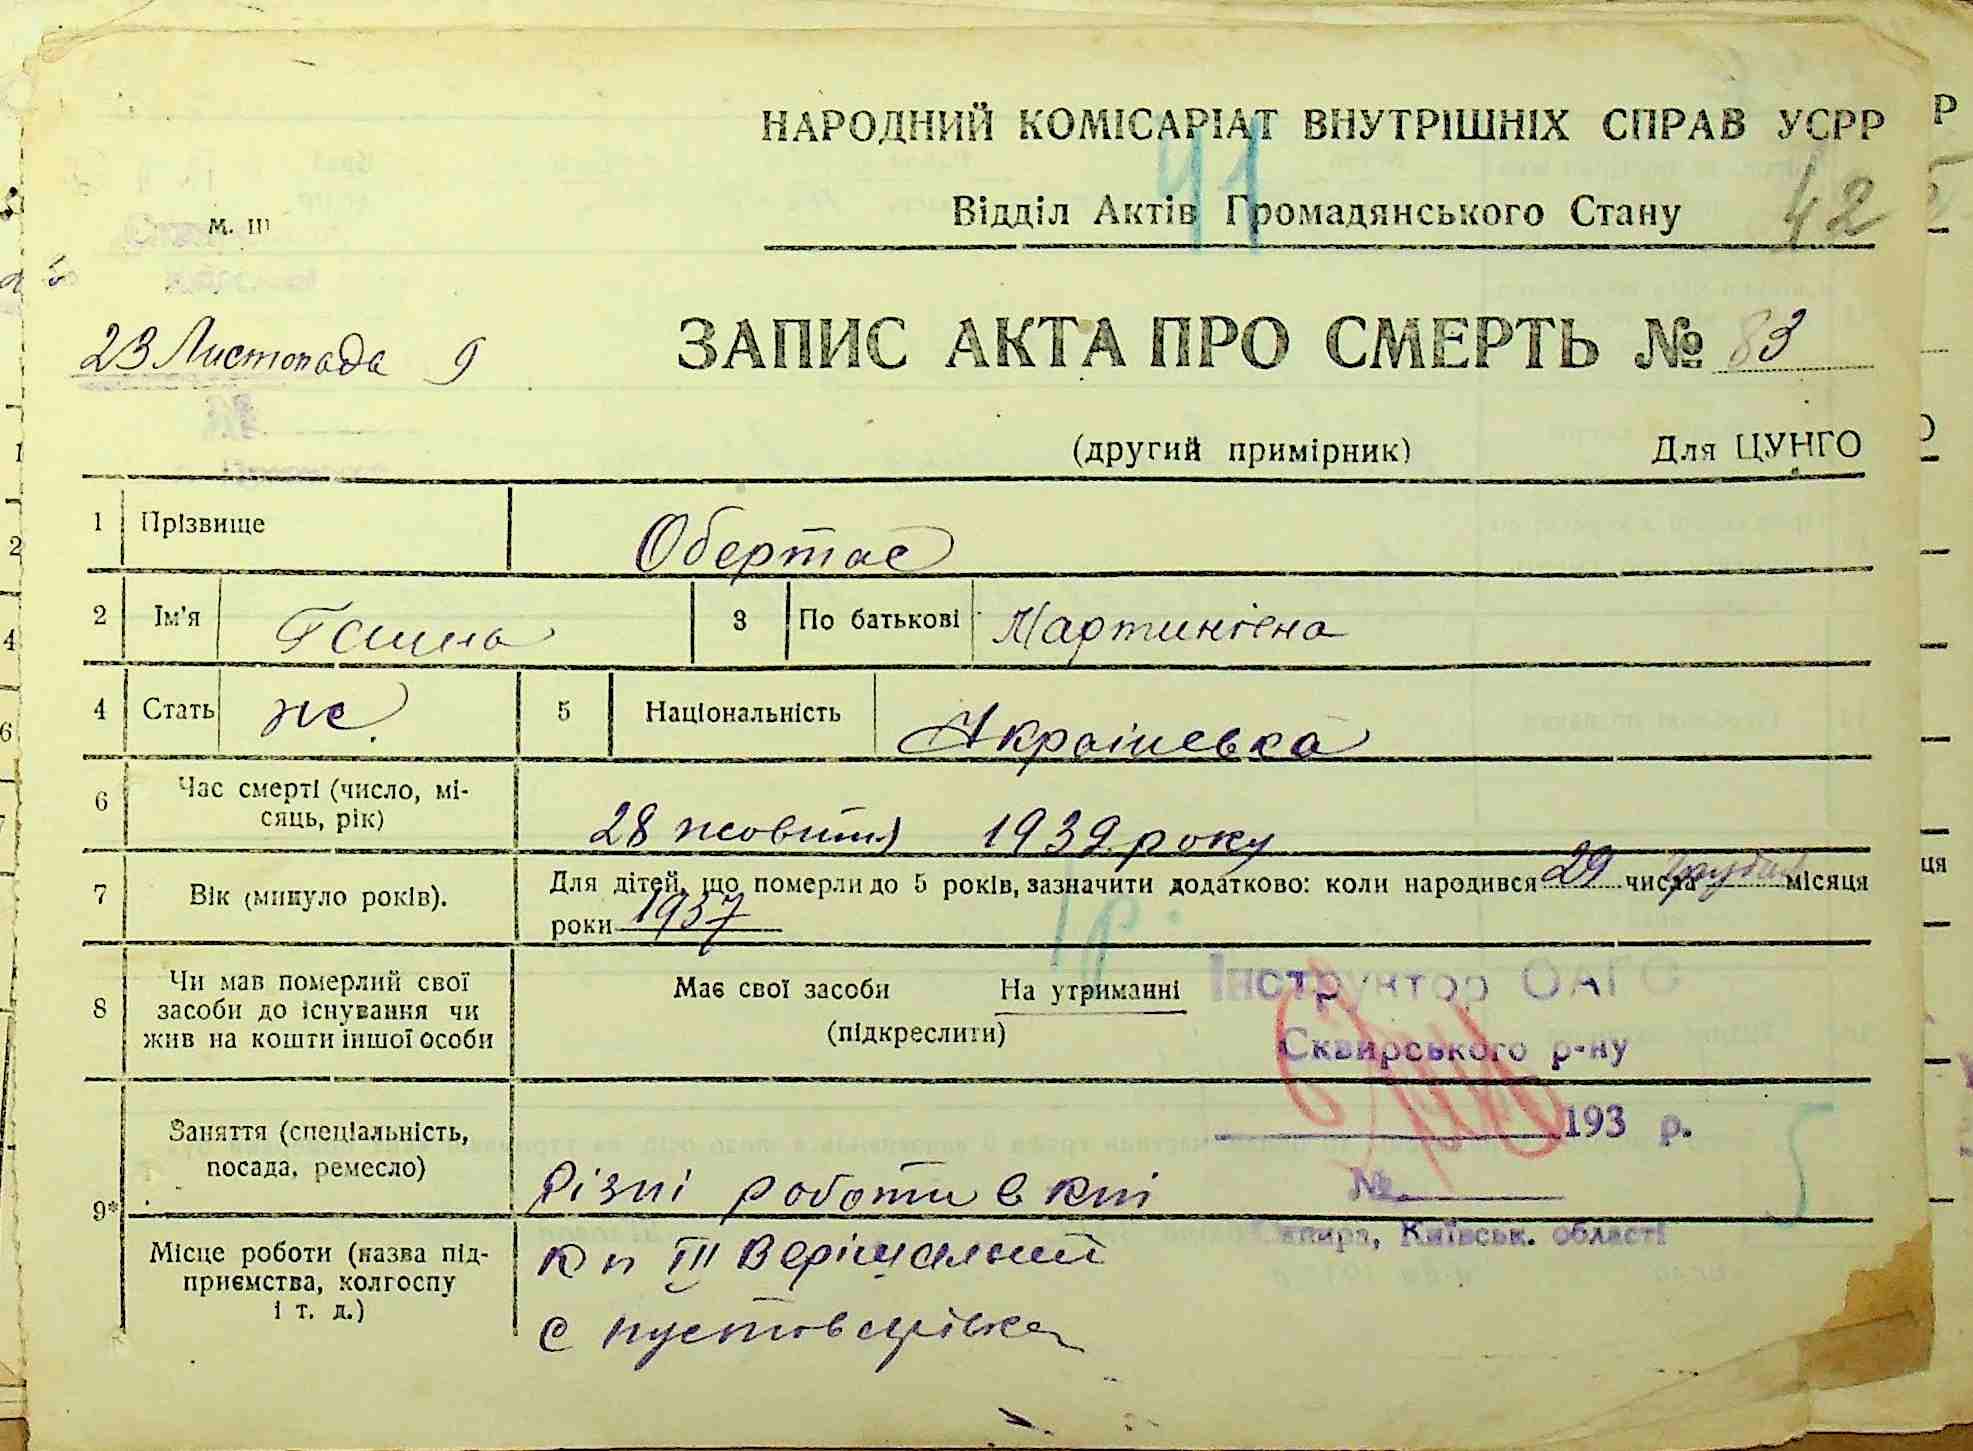 НАРОДНИЙ КОМІСАРІАТ ВНУТРІШНІХ СПРАВ УСРР
41
Відділ Актів Громадянського Стану
42
м. ІІІ
23 Листопада 9
ЗАПИС АКТА ПРО СМЕРТЬ № 83
(другий примірник) Для ЦУНГО
1 Прізвище Обертас
2 Ім'я Ганна 3 По батькові Мартинівна
4 Стать ж. 5 Національність Українська
6 Час смерті (число, мі-
сяць, рік)
28 жовтня 1939 року
7 Вік (минуло років). Для дітей, що померли до 5 років, зазначити додатково: коли народився 29 числа грудня місяця
роки 1937
1 р.
8 Чи мав померлий свої
засоби до існування чи
жив на кошти іншої особи
Має свої засоби На утриманні
(підкреслити)
Інструктор ОАГС
Сквирського р-ну
193 р.
№
Сквира, Київськ. області
9* Заняття (спеціальність,
посада, ремесло)
Різні роботи в кпі
Місце роботи (назва під-
приємства, колгоспу
і т. д.)
Кп ІІІ Вирішальний
с Пустоварівка
5